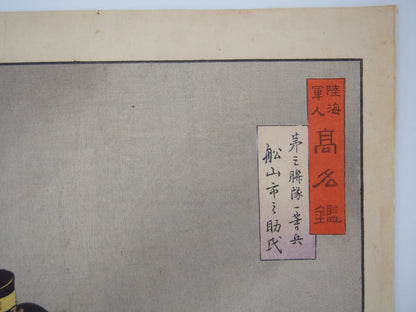 陸海
軍人
高名鑑
第三聯隊一等兵
船山市之助氏